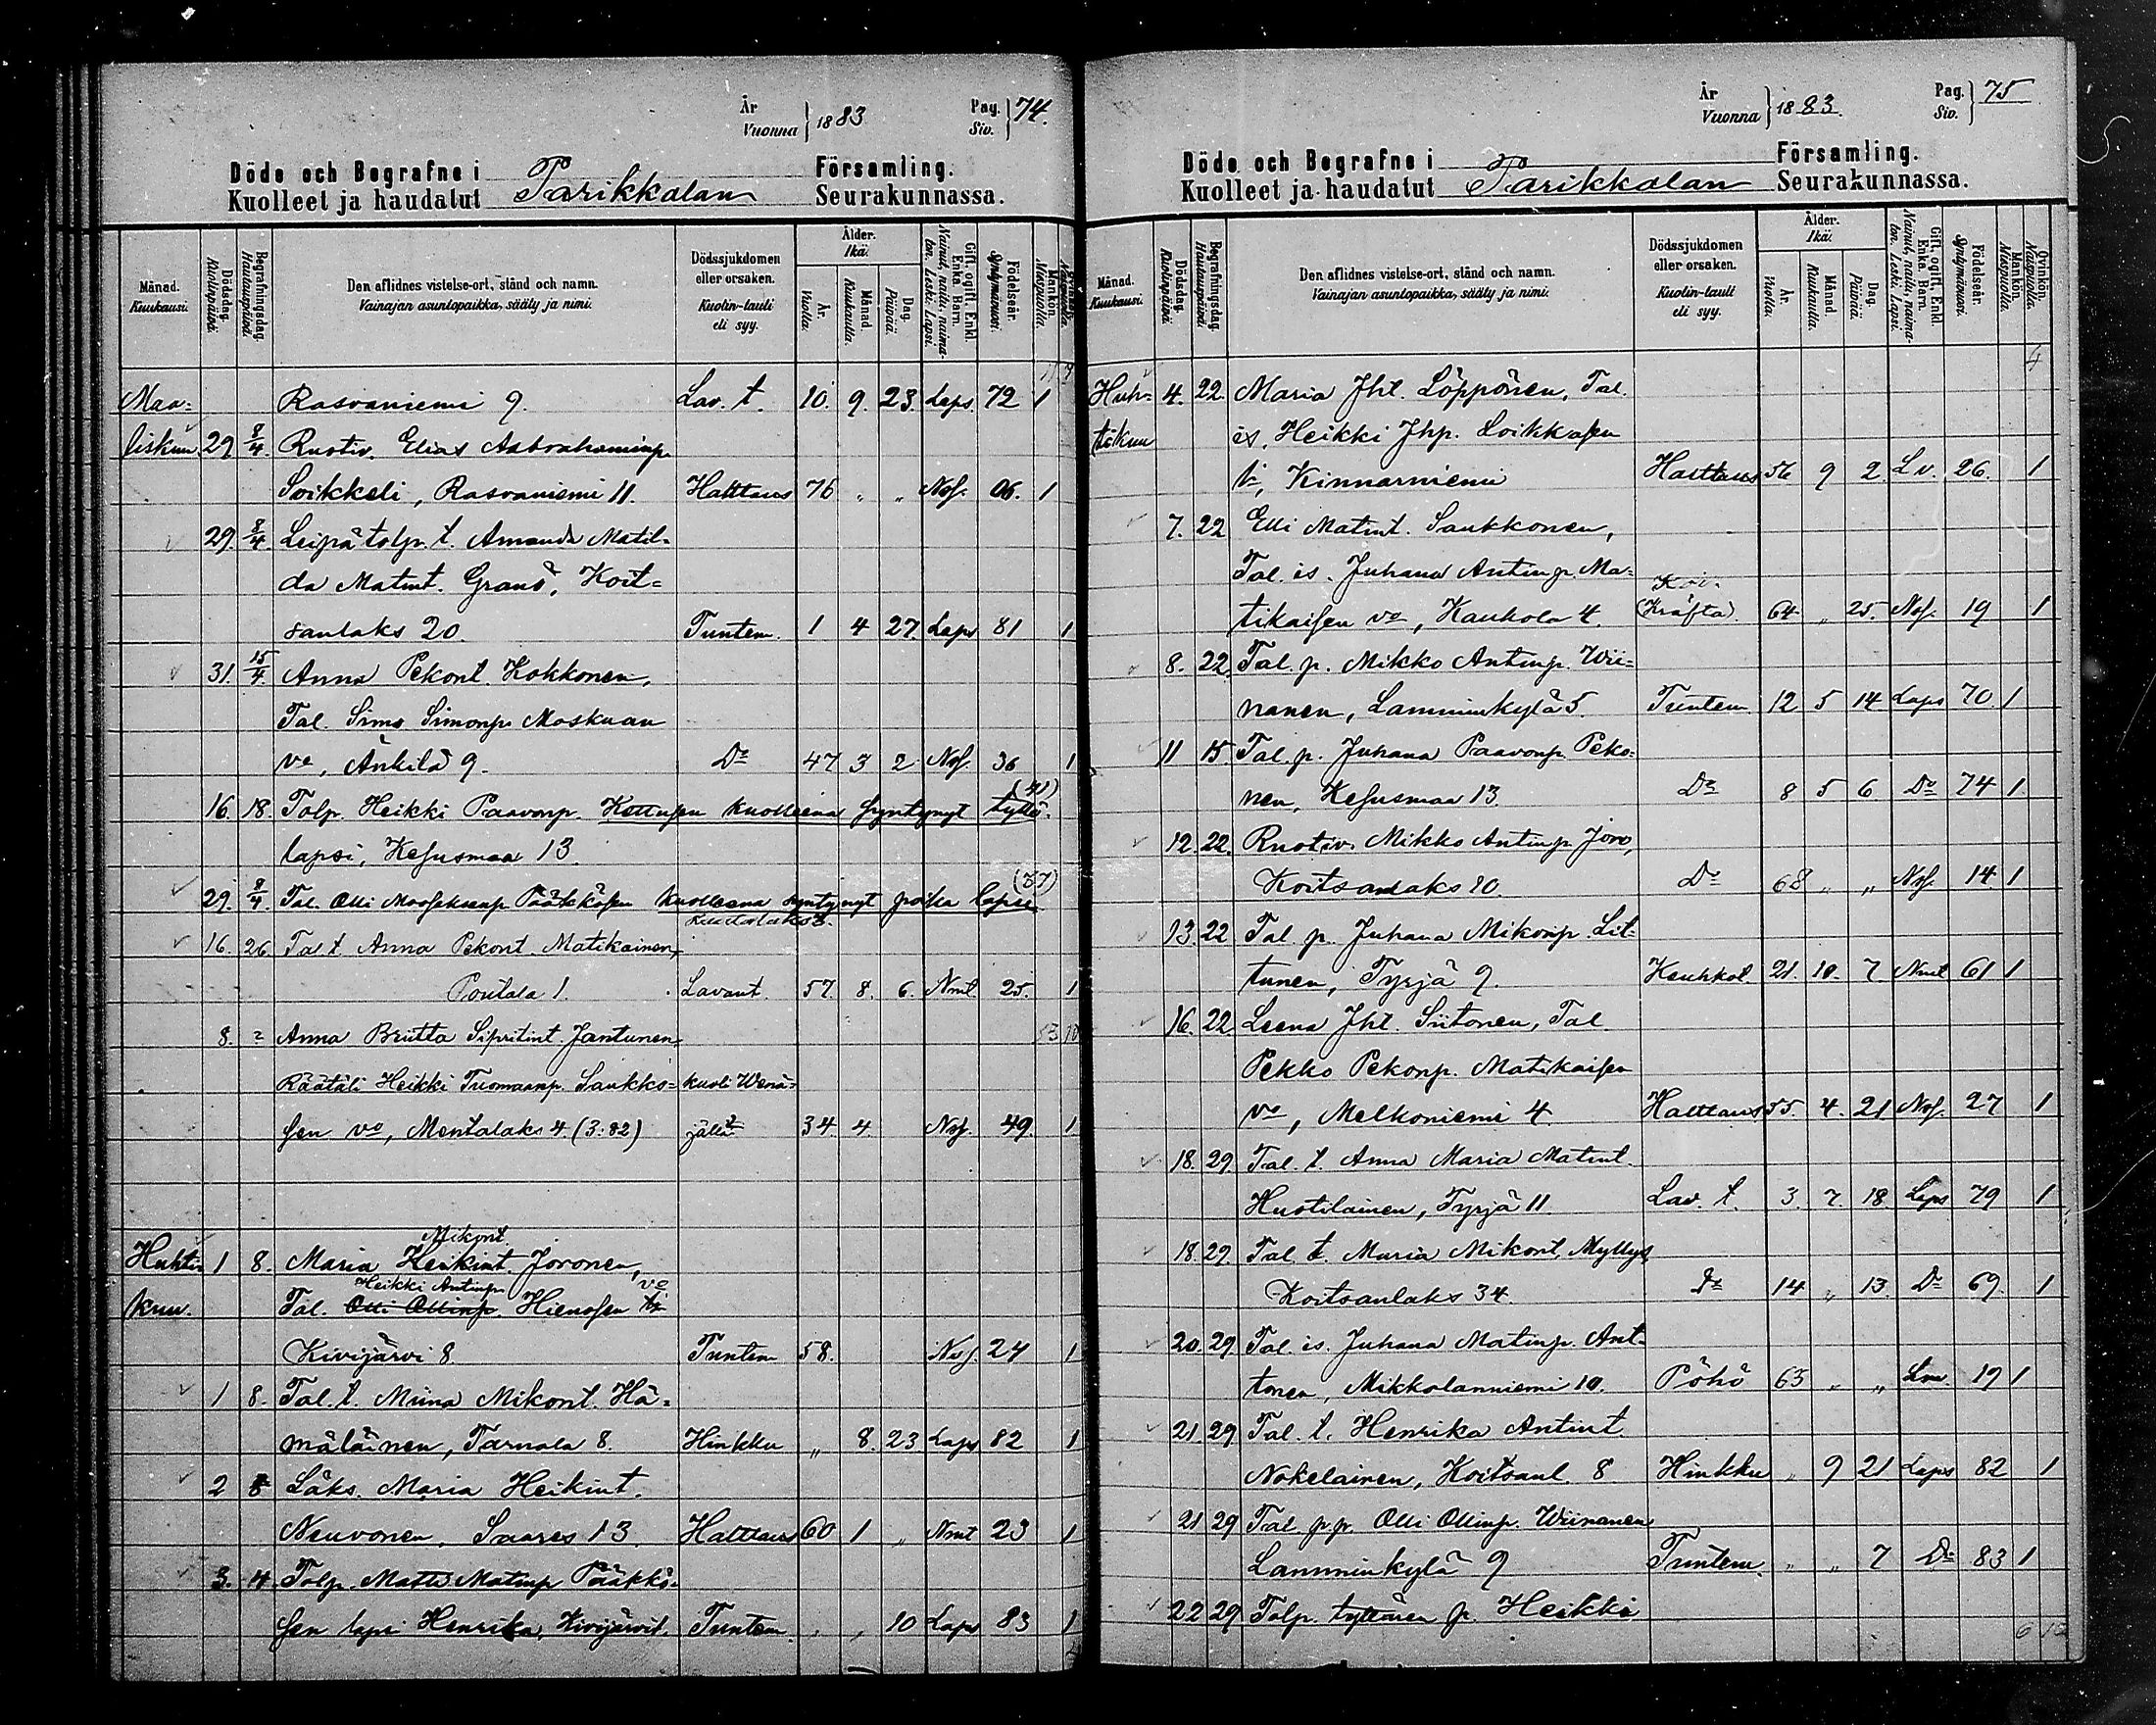 År
Vuonna } 1883
Pag.
Siv. } 74.
Döde och Begrafne i Parikkalan Församling.
Kuolleet ja haudatut Seurakunnassa.
Månad. Kuukausi.
Dödsdag. Kuolinpäivä.
Begrafningsdag. Hautauspäivä.
Den aflidnes vistelse-ort, stånd och namn.
Vainajan asuntopaikka, sääty ja nimi.
Dödssjukdomen eller orsaken.
Kuolin-tauli eli syy.
Ålder. Ikä.
År. Vuotta.
Månad. Kuukautta.
Dag. Päivää.
Gift, ogift, Enkl. Enka. Barn.
Nainut, naitu, naimaton. Leski. Lapsi.
Födelseår. Syntymävuosi.
Mankön. Miespuolia.
Maa- Rasvaniemi 9. Lav. t. 10. 9. 23. Laps 72 1
liskuu. 29 8/4. Ruotiv. Elias Aabrahaminp.
Soikkeli, Rasvaniemi 11. Halttaus 76 „ „ Nos. 06. 1
29. 8/4. Leipätolp. t. Amanda Matil-
da Matint. Granö, Koit-
sanlaks 20. Tuntem. 1 4 27. Laps 81 1
31. 15/4. Anna Pekont. Kokkonen,
Tal. Simo Simonp. Moskuan
vo, Änkilä 9. Do 47 3 2 Nos. 36 1
16. 18. Tolp. Heikki Paavonp. Kottusen kuolleena syntynyt tyttö- (41)
lapsi, Kesusmaa 13.
29. 8/4. Tal. Olli Mooseksenp. Pääkkösen kuolleena syntynyt poika lapsi (37)
16. 26. Tal. t. Anna Pekont. Matikainen,
Poutala 1. Lavant. 57. 8. 6. Nmt 25. 1
8. „ Anna Briitta Sipritint. Jantunen, 13 10
Räätäli Heikki Tuomaanp. Saukko- kuoli Wenä-
sen vo, Mentalaks 4 (3:82) jällä 34. 4. Nos. 49. 1
Mikont.
Huhti- 1 8. Maria Heikint. Joronen,
Heikki Antinp. vo
kuu. Tal. Olli Ollinp. Hienosen
Kivijärvi 8 Tuntem 58. Nos. 24 1
1 8. Tal. t. Miina Mikont. Hä-
mäläinen, Tarnala 8. Hinkku „ 8. 23 Laps 82 1
2 8 Läks. Maria Heikint.
Neuvonen, Saares 13. Halttaus 60 1 „ Nmt 23 1
3. 4. Tolp. Matti Matinp Pääkkö-
sen lapsi Henrika, Kivijärvi. Tuntem. „ „ 10 Laps 83 1
År
Vuonna } 1883.
Pag.
Siv. } 75
Döde och Begrafne i Parikkalan Församling.
Kuolleet ja haudatut Seurakunnassa.
Månad. Kuukausi.
Dödsdag. Kuolinpäivä.
Begrafningsdag. Hautauspäivä.
Den aflidnes vistelse-ort, stånd och namn.
Vainajan asuntopaikka, sääty ja nimi.
Dödssjukdomen eller orsaken.
Kuolin-tauli eli syy.
Ålder. Ikä.
År. Vuotta.
Månad. Kuukautta.
Dag. Päivää.
Gift, ogift, Enkl. Enka. Barn.
Nainut, naitu, naimaton. Leski. Lapsi.
Födelseår. Syntymävuosi.
Mankön. Miespuolia.
Qvinkön. Naispuolia.
4
Huh- 4. 22. Maria Jht. Löppönen, Tal.
tikuu is. Heikki Jhp. Loikkasen
Kinnarniemi Halttaus 56 9 2. Lv. 26. 1
7. 22 Elli Matint. Saukkonen,
Tal. is. Juhana Antinp. Ma-
tikaisen vo, Kaukola 4. (Kräfta) 64. „ 25. Nos. 19 1
8. 22. Tal. p. Mikko Antinp. Wii-
nanen, Lamminkylä 5. Tuntem. 12 5 14 Laps 70 1
11 15 Tal. p. Juhana Paavonp. Peko-
nen, Kesusmaa 13. Do 8 5 6 Do 74 1
12. 22. Ruotiv. Mikko Antinp. Joro,
Koitsanlaks 20. Do 68 „ „ Nos. 14 1
13. 22 Tal. p. Juhana Mikonp. Lit-
tunen, Tyrjä 9. Keuhkot. 21. 10. 7. Nmt 61 1
16. 22. Leena Jht. Siitonen, Tal
Pekko Pekonp. Matikaisen
vo, Melkoniemi 4. Halttaus 55. 4. 21 Nos. 27 1
18. 29. Tal. t. Anna Maria Matint.
Huotilainen, Tyrjä 11. Lav. t. 3. 7. 18 Laps 79 1
18. 29. Tal. t. Maria Mikont. Myllys
Koitsanlaks 34. Do 14 „ 13. Do 69. 1
20. 29. Tal. is. Juhana Matinp. Ant-
tonen, Mikkolanniemi 10. Pöhö 63 „ „ 19 1
21. 29. Tal. t. Henrika Antint.
Nokelainen, Koitsanl. 8 Hinkku „ 9 21 Laps 82 1
21 29 Tal. p.p. Olli Ollinp. Wiinanen
Lamminkylä 9 Tuntem. „ „ 7 Do 83 1
22 29 Tolp. tyttären p. Heikki
6 10